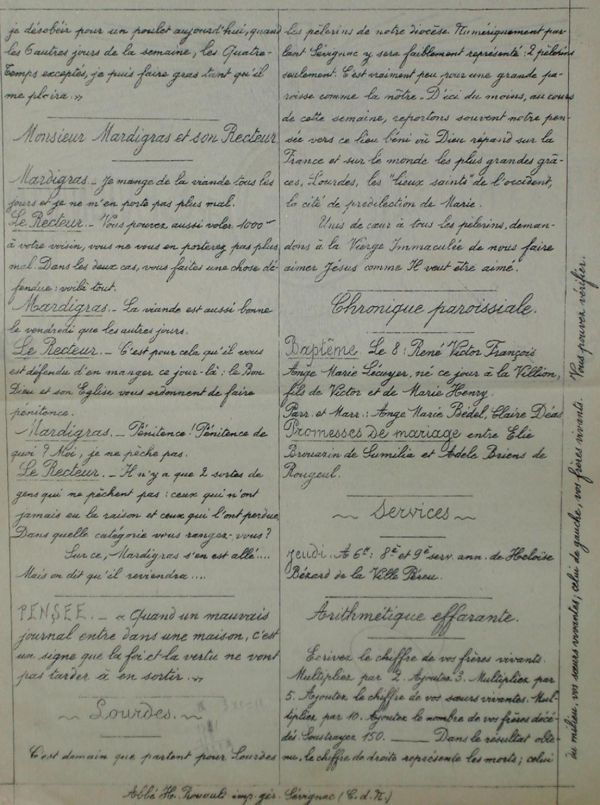 je désobéir pour un poulet aujourd'hui, quand
les 6 autres jours de la semaine, les Quatre-
Temps exceptés, je puis faire gras tant qu'il
me plaira. »
Monsieur Mardigras et son Recteur
Mardigras. _ Je mange de la viande tous les
jours et je ne m'en porte pas plus mal.
Le Recteur. _ Vous pouvez aussi voler 1000
à votre voisin, vous ne vous en porterez pas plus
mal. Dans les deux cas, vous faites une chose dé-
fendue : voilà tout.
Mardigras. _ La viande est aussi bonne
le vendredi que les autres jours.
Le Recteur. _ C'est pour cela qu'il vous
est défendu d'en manger ce jour-là : le Bon
Dieu et son Eglise vous ordonnent de faire
pénitence.
Mardigras. _ Pénitence ! Pénitence de
quoi ? Moi, je ne pèche pas.
Le Recteur. _ Il n'y a que 2 sortes de
gens qui ne pèchent pas : ceux qui n'ont
jamais eu la raison et ceux qui l'ont perdue.
Dans quelle catégorie vous rangez-vous ?
Sur ce, Mardigras s'en est allé....
Mais on dit qu'il reviendra....
PENSEE. _ « Quand un mauvais
journal entre dans une maison, c'est
un signe que la foi et la vertu ne vont
pas tarder à en sortir »
Lourdes.
C'est demain que partent pour Lourdes
les pèlerins de notre diocèse. Numériquement par-
lant Sévignac y sera faiblement représenté : 2 pèlerins
seulement. C'est vraiment peu pour une grande pa-
roisse comme la nôtre. D'ici du moins, au cours
de cette semaine, reportons souvent notre pen-
sée vers ce lieu béni où Dieu répand sur la
France et sur le monde les plus grandes grâ-
ces, Lourdes, les "lieux saints" de l'occident,
la cité de prédilection de Marie.
Unis de cœur à tous les pèlerins, deman-
dons à la Vierge Immaculée de nous faire
aimer Jésus comme Il veut être aimé.
Chronique paroissiale.
Baptême. Le 8 : René Victor François
Ange Marie Lécuyer, né ce jour à la Villion,
fils de Victor et de Marie Henry.
Parr. et Marr. : Ange Marie Bédel, Claire Déas
Promesses de mariage entre Elie
Brouazin de Sumilia et Adèle Briens de
Rougeul.
Services
Jeudi. A 6h : 8e et 9e serv. ann. de Héloïse
Bézard de la Ville Péreu.
Arithmétique effarante.
Ecrivez le chiffre de vos frères vivants.
Multipliez par 2. Ajoutez 3. Multipliez par
5. Ajoutez le chiffre de vos sœurs vivantes. Mul-
tipliez par 10. Ajoutez le nombre de vos frères décé-
dés. Soustrayez 150. _ Dans le résultat obte-
nu, le chiffre de droite représente les morts ; celui
du milieu, vos sœurs vivantes, celui de gauche, vos frères vivants. Vous pouvez vérifier.
Abbé H. Rouault imp. gér. Sévignac (C. d. N.)